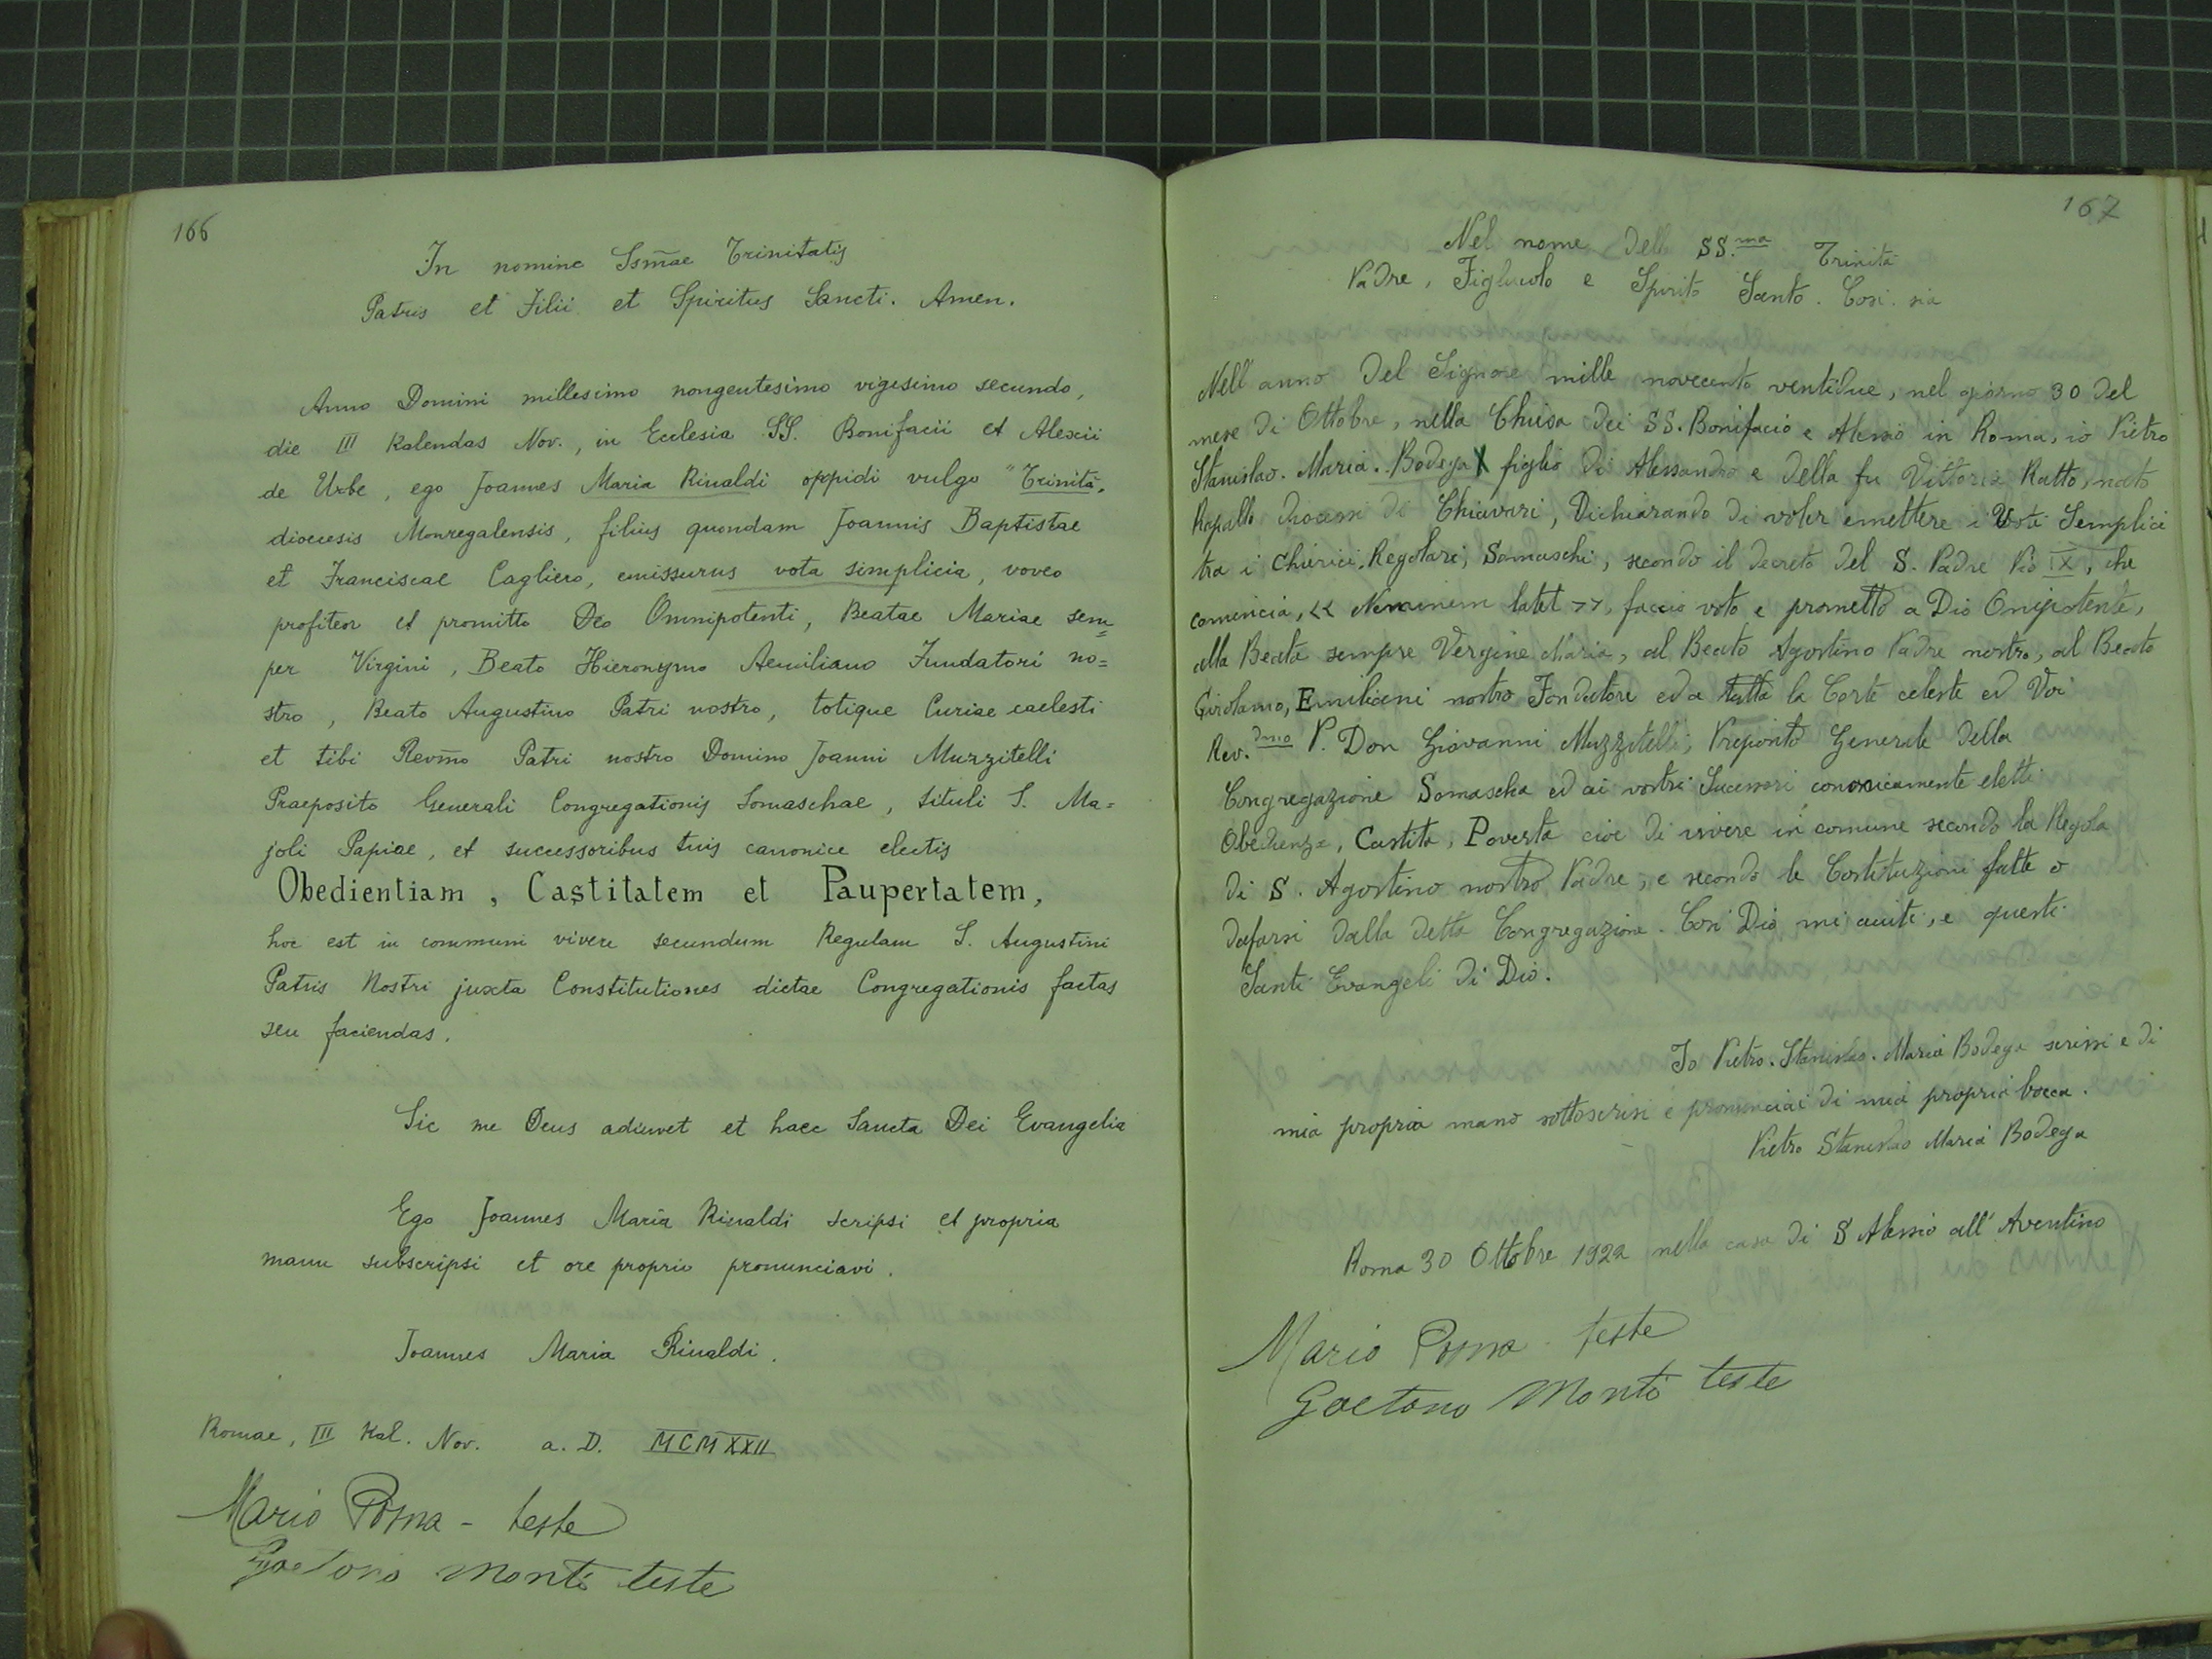 166
In nomine Ssm̃ae Trinitatis
Patris et Filii et Spiritus Sancti. Amen.
Anno Domini millesimo nongentesimo vigesimo secundo,
die III Kalendas Nov., in Ecclesia SS. Bonifacii et Alexii
de Urbe, ego Joannes Maria Rinaldi oppidi vulgo "Trinità"
dioecesis Monregalensis, filius quondam Joannis Baptistae
et Franciscae Cagliero, emissurus vota simplicia, voveo
profiteor et promitto Deo Omnipotenti, Beatae Mariae sem=
per Virgini, Beato Hieronymo Aemiliano Fundatori no=
stro, Beato Augustino Patri nostro, totique Curiae caelesti
et tibi Revm̃o Patri nostro Domino Joanni Muzzitelli
Praeposito Generali Congregationis Somaschae, tituli S. Ma=
joli Papiae, et successoribus tuis canonice electis
Obedientiam, Castitatem et Paupertatem,
hoc est in communi vivere secundum Regulam S. Augustini
Patris Nostri juxta Constitutiones dictae Congregationis factas
seu faciendas.
Sic me Deus adiuvet et haec Sancta Dei Evangelia
Ego Joannes Maria Rinaldi scripsi et propria
manu subscripsi et ore proprio pronunciavi.
Joannes Maria Rinaldi.
Romae, III Kal. Nov. a. D. MCMXXII
Mario Poma - teste
Gaetano Monti teste
167
Nel nome della SS.ma Trinità
Padre, Figliuolo e Spirito Santo. Così sia
Nell anno Del Signore mille novecento ventidue, nel giorno 30 del
mese di Ottobre, nella Chiesa dei SS. Bonifacio e Alessio in Roma, io Pietro
Stanislao. Maria. Bodega X figlio di Alessandro e della fu Vittoria Ratto, nato
Rapallo diocesi di Chiavari, Dichiarando di voler emettere i Voti Semplici
tra i Chierici Regolari, Somaschi, secondo il decreto del S. Padre Pio IX, che
comincia, << Neminem latet >>, faccio voto e prometto a Dio Onnipotente,
alla Beata sempre Vergine Maria, al Beato Agostino Padre nostro, al Beato
Girolamo, Emiliani nostro Fondatore ed a tutta la Corte celeste ed Voi
Rev.dmo P. Don Giovanni Muzzitelli, Preposito Generale della
Congregazione Somascha ed ai vostri Successori canonicamente eletti
Obedienza, Castità, Povertà cioè di vivere in comune secondo la Regola
di S. Agostino nostro Padre, e secondo le Costituzioni fatte o
dafarsi dalla detta Congregazione. Così Dio mi aiuti, e questi
Santi Evangeli di Dio.
Io Pietro. Stanislao. Maria Bodega scrissi e di
mia propria mano sottoscrissi e pronunciai di mia propria bocca.
Pietro Stanislao Maria Bodega
Roma 30 Ottobre 1922 nella casa di S Alessio all' Aventino
Mario Poma - teste
Gaetano Monti teste